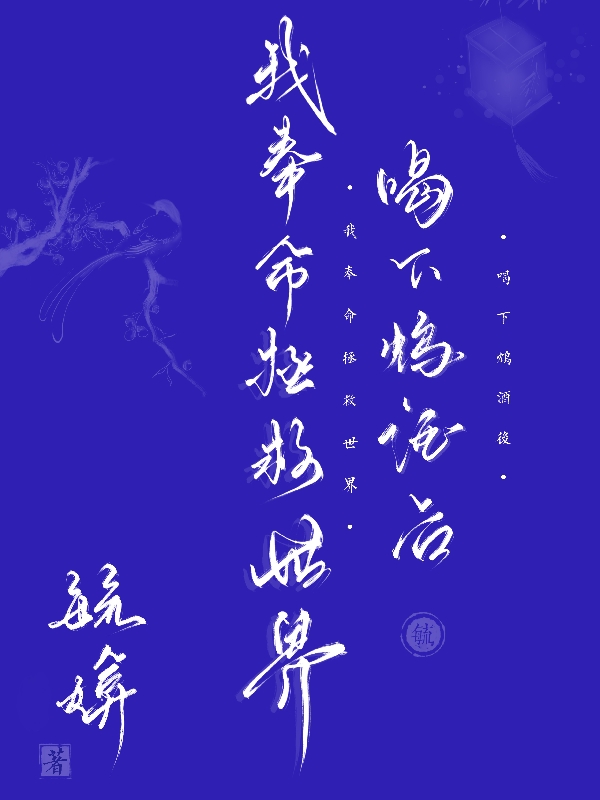 喝下鸩酒后
·喝下鸩酒後·
我奉命拯救世界
·我奉命拯救世界·
毓
毓媕
著